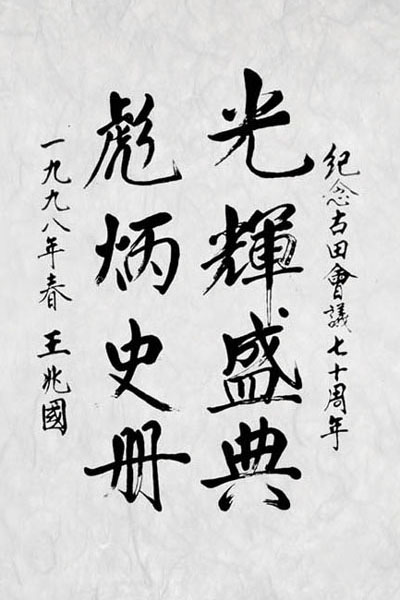 紀念古田會議七十周年
光輝盛典
彪炳史册
一九九八年春 王兆國